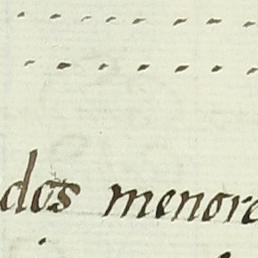 dos menore